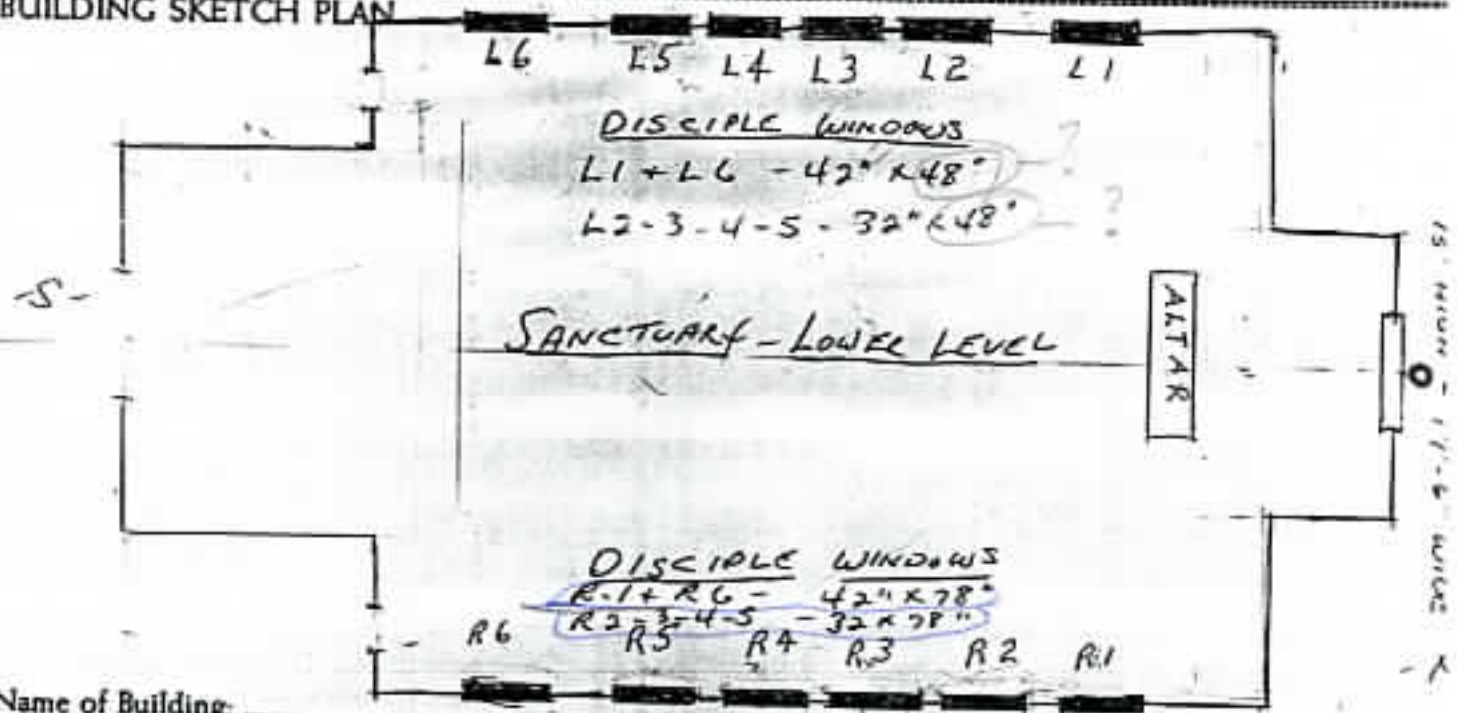 BUILDING SKETCH PLAN
L6 L5 L4 L3 L2 L1
DISCIPLE WINDOWS
L1 + L6 - 42" x 48" - ?
L2-3-4-5 - 32" x 48" - ?
-S-
SANCTUARY - LOWER LEVEL
ALTAR
15' HIGH - 17'-6" WIDE
DISCIPLE WINDOWS
R.1 + R6 - 42" x 78"
R2-3-4-5 - 32 x 78"
R6 R5 R4 R3 R2 R.1
Name of Building: